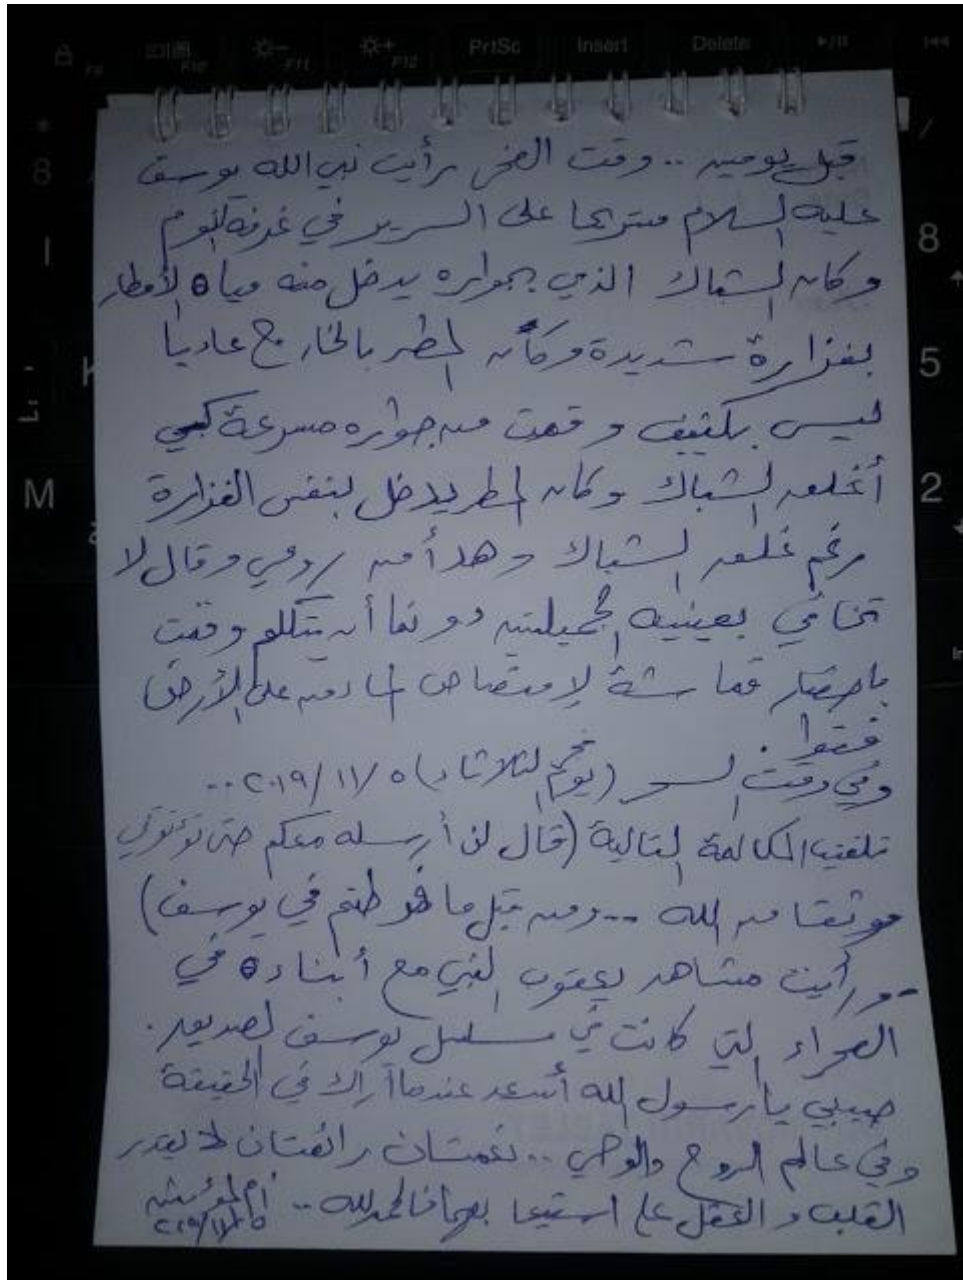 PrtSc Insert Delete
F9 F10 F11 F12
قبل يومين .. وقت الفجر رأيت نبي الله يوسف
عليه السلام متربعا على السرير في غرفة النوم
وكان الشباك الذي بجواره يدخل منه مياه الأمطار
بغزارة شديدة وكأن المطر بالخارج عاديا
ليس بكثيف وقمت من جواره مسرعة كي
أغلق الشباك وكان المطر يدخل بنفس الغزارة
رغم غلق الشباك وهدأ من روعي وقال لا
تخافي بعينيه الجميلتين دونما أن يتكلم وقمت
بإحضار قماشة لإمتصاص الماء من على الأرض
وفي وقت السحر (يوم الثلاثاء) ٥/١١/٢٠١٩ ..
تلقيت المكالمة التالية (قال لن أرسله معكم حتى تؤتوني
موثقا من الله -- ومن قبل ما فرطتم في يوسف)
ورأيت مشاهد يعقوب النبي مع أبناءه في
الصحراء التي كانت في مسلسل يوسف الصديق .
حبيبي يا رسول الله أسعد عندما أراك في الحقيقة
وفي عالم الروح والوحي .. نعمتان رائعتان لا يقدر
القلب والعقل على استيعابهما فالحمد لله ..
أم المؤمنين
8
8
5
2
M